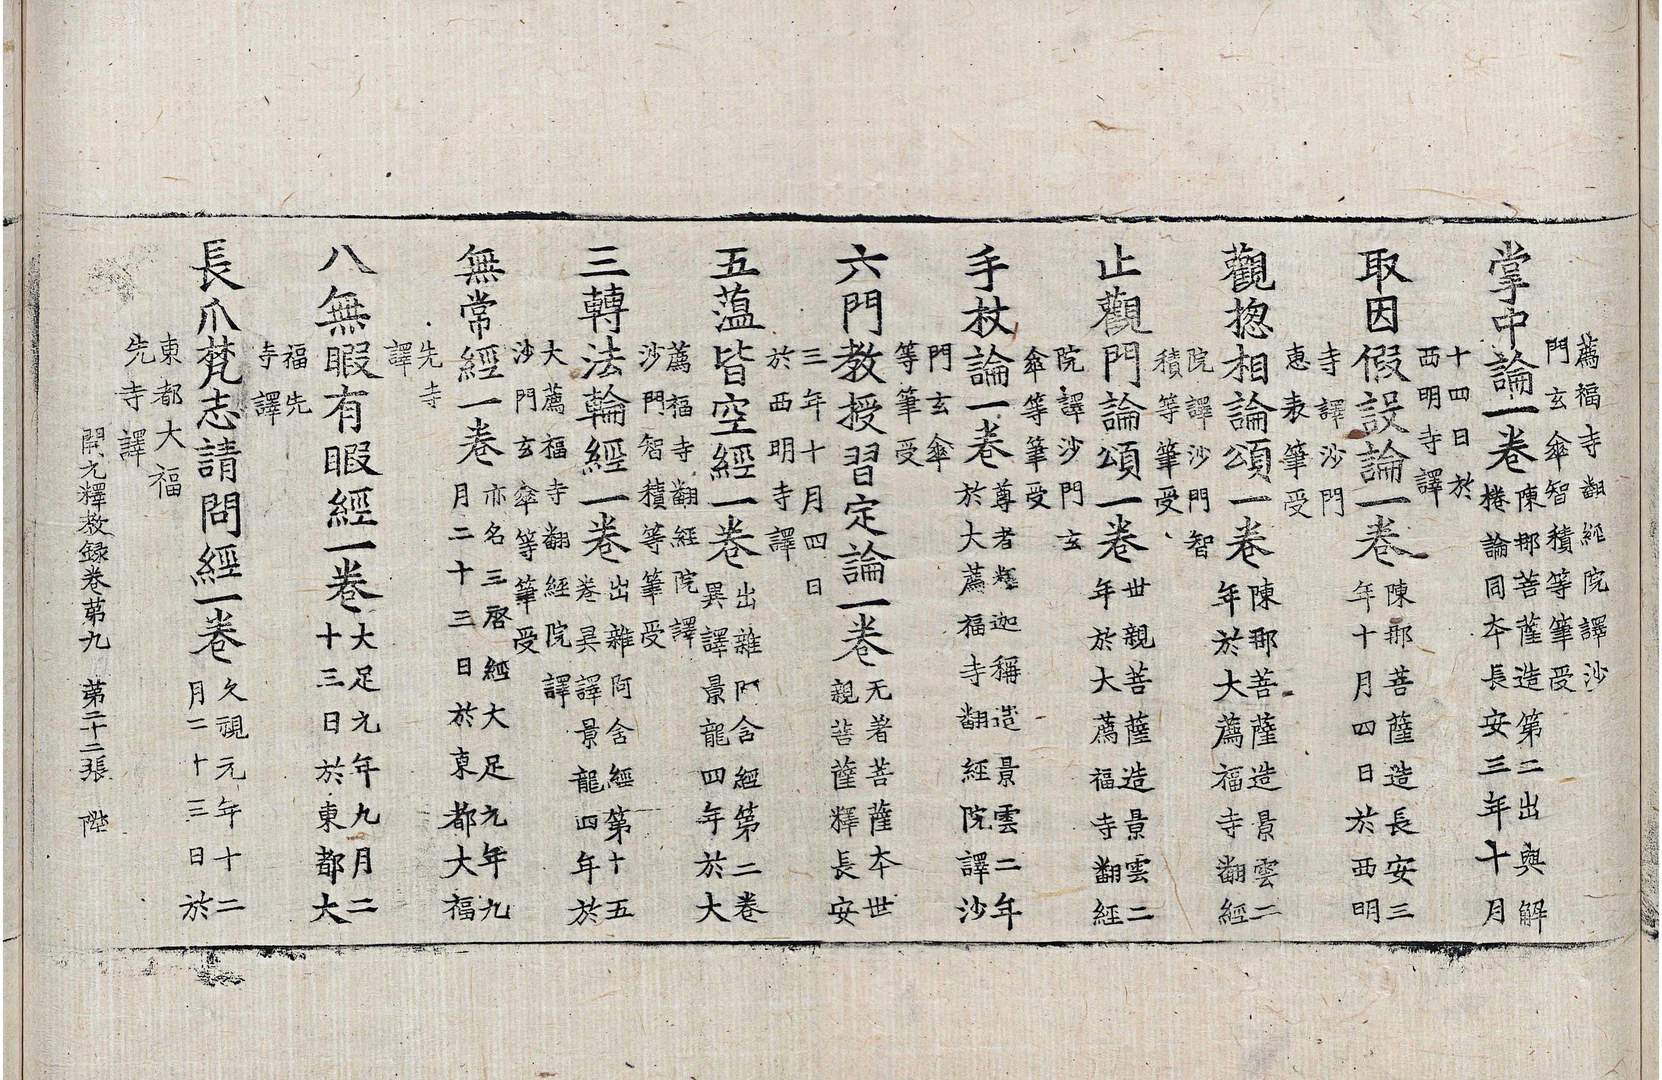 薦福寺翻經院譯沙
門玄傘智積等筆受
掌中論一卷
陳那菩薩造第二出與解
捲論同本長安三年十月
十四日於
西明寺譯
取因假設論一卷
陳那菩薩造長安三
年十月四日於西明
寺譯沙門
惠表筆受
觀揔相論頌一卷
陳那菩薩造景雲二
年於大薦福寺翻經
院譯沙門智
積等筆受
止觀門論頌一卷
世親菩薩造景雲二
年於大薦福寺翻經
院譯沙門玄
傘等筆受
手杖論一卷
尊者釋迦稱造景雲二年
於大薦福寺翻經院譯沙
門玄傘
等筆受
六門教授習定論一卷
无著菩薩本世
親菩薩釋長安
三年十月四日
於西明寺譯
五蕰皆空經一卷
出雜阿含經第二卷
異譯景龍四年於大
薦福寺翻經院譯
沙門智積等筆受
三轉法輪經一卷
出雜阿含經第十五
卷異譯景龍四年於
大薦福寺翻經院譯
沙門玄傘等筆受
無常經一卷
亦名三啓經大足元年九
月二十三日於東都大福
先寺
譯
八無暇有暇經一卷
大足元年九月二
十三日於東都大
福先
寺譯
長爪梵志請問經一卷
久視元年十二
月二十三日於
東都大福
先寺譯
開元釋教録卷苐九 苐二十二張 陛